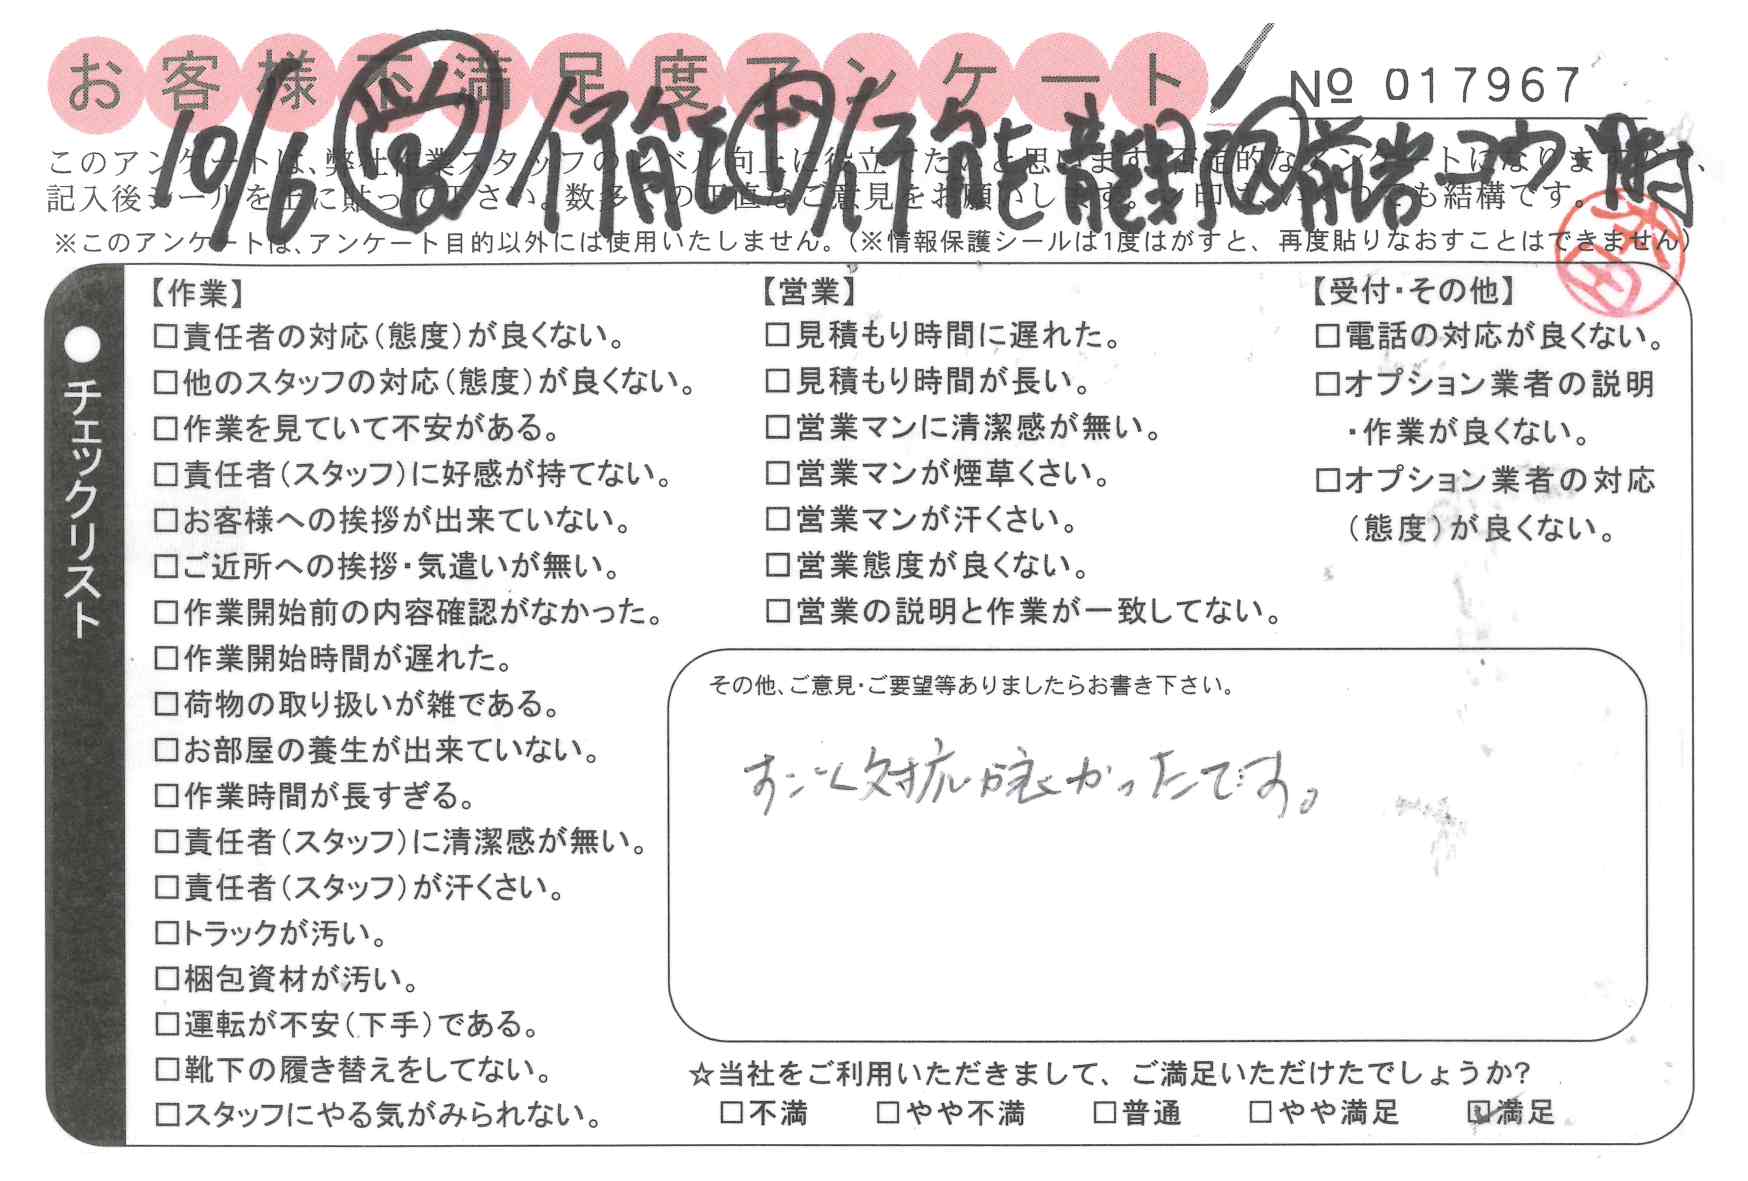 お客様不満足度アンケート
No 017967
10/6
このアンケートは、弊社作業スタッフのレベル向上に役立てたいと思います。否定的なアンケートになりますので、
記入後シールを上に貼って下さい。数多くの正直なご意見をお願いします。レ印は、いくつでも結構です。
※このアンケートは、アンケート目的以外には使用いたしません。(※情報保護シールは1度はがすと、再度貼りなおすことはできません)
●チェックリスト
【作業】
□責任者の対応(態度)が良くない。
□他のスタッフの対応(態度)が良くない。
□作業を見ていて不安がある。
□責任者(スタッフ)に好感が持てない。
□お客様への挨拶が出来ていない。
□ご近所への挨拶・気遣いが無い。
□作業開始前の内容確認がなかった。
□作業開始時間が遅れた。
□荷物の取り扱いが雑である。
□お部屋の養生が出来ていない。
□作業時間が長すぎる。
□責任者(スタッフ)に清潔感が無い。
□責任者(スタッフ)が汗くさい。
□トラックが汚い。
□梱包資材が汚い。
□運転が不安(下手)である。
□靴下の履き替えをしてない。
□スタッフにやる気がみられない。
【営業】
□見積もり時間に遅れた。
□見積もり時間が長い。
□営業マンに清潔感が無い。
□営業マンが煙草くさい。
□営業マンが汗くさい。
□営業態度が良くない。
□営業の説明と作業が一致してない。
【受付・その他】
□電話の対応が良くない。
□オプション業者の説明
・作業が良くない。
□オプション業者の対応
(態度)が良くない。
その他、ご意見・ご要望等ありましたらお書き下さい。
すごく対応が良かったです。
☆当社をご利用いただきまして、ご満足いただけたでしょうか?
□不満 □やや不満 □普通 □やや満足 ☑満足